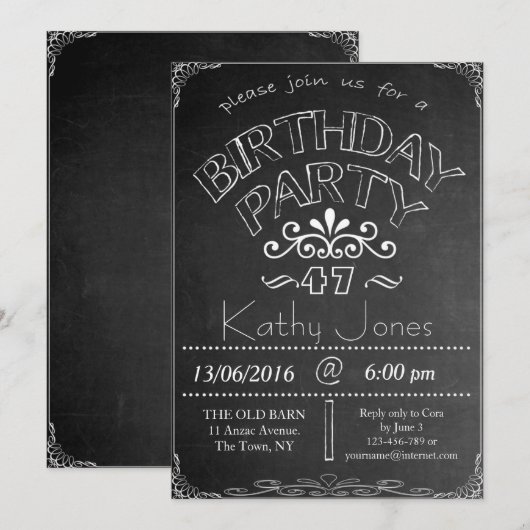 please join us for a
BIRTHDAY
PARTY
47
Kathy Jones
13/06/2016 @ 6:00 pm
THE OLD BARN
11 Anzac Avenue.
The Town, NY
Reply only to Cora
by June 3
123-456-789 or
yourname@internet.com